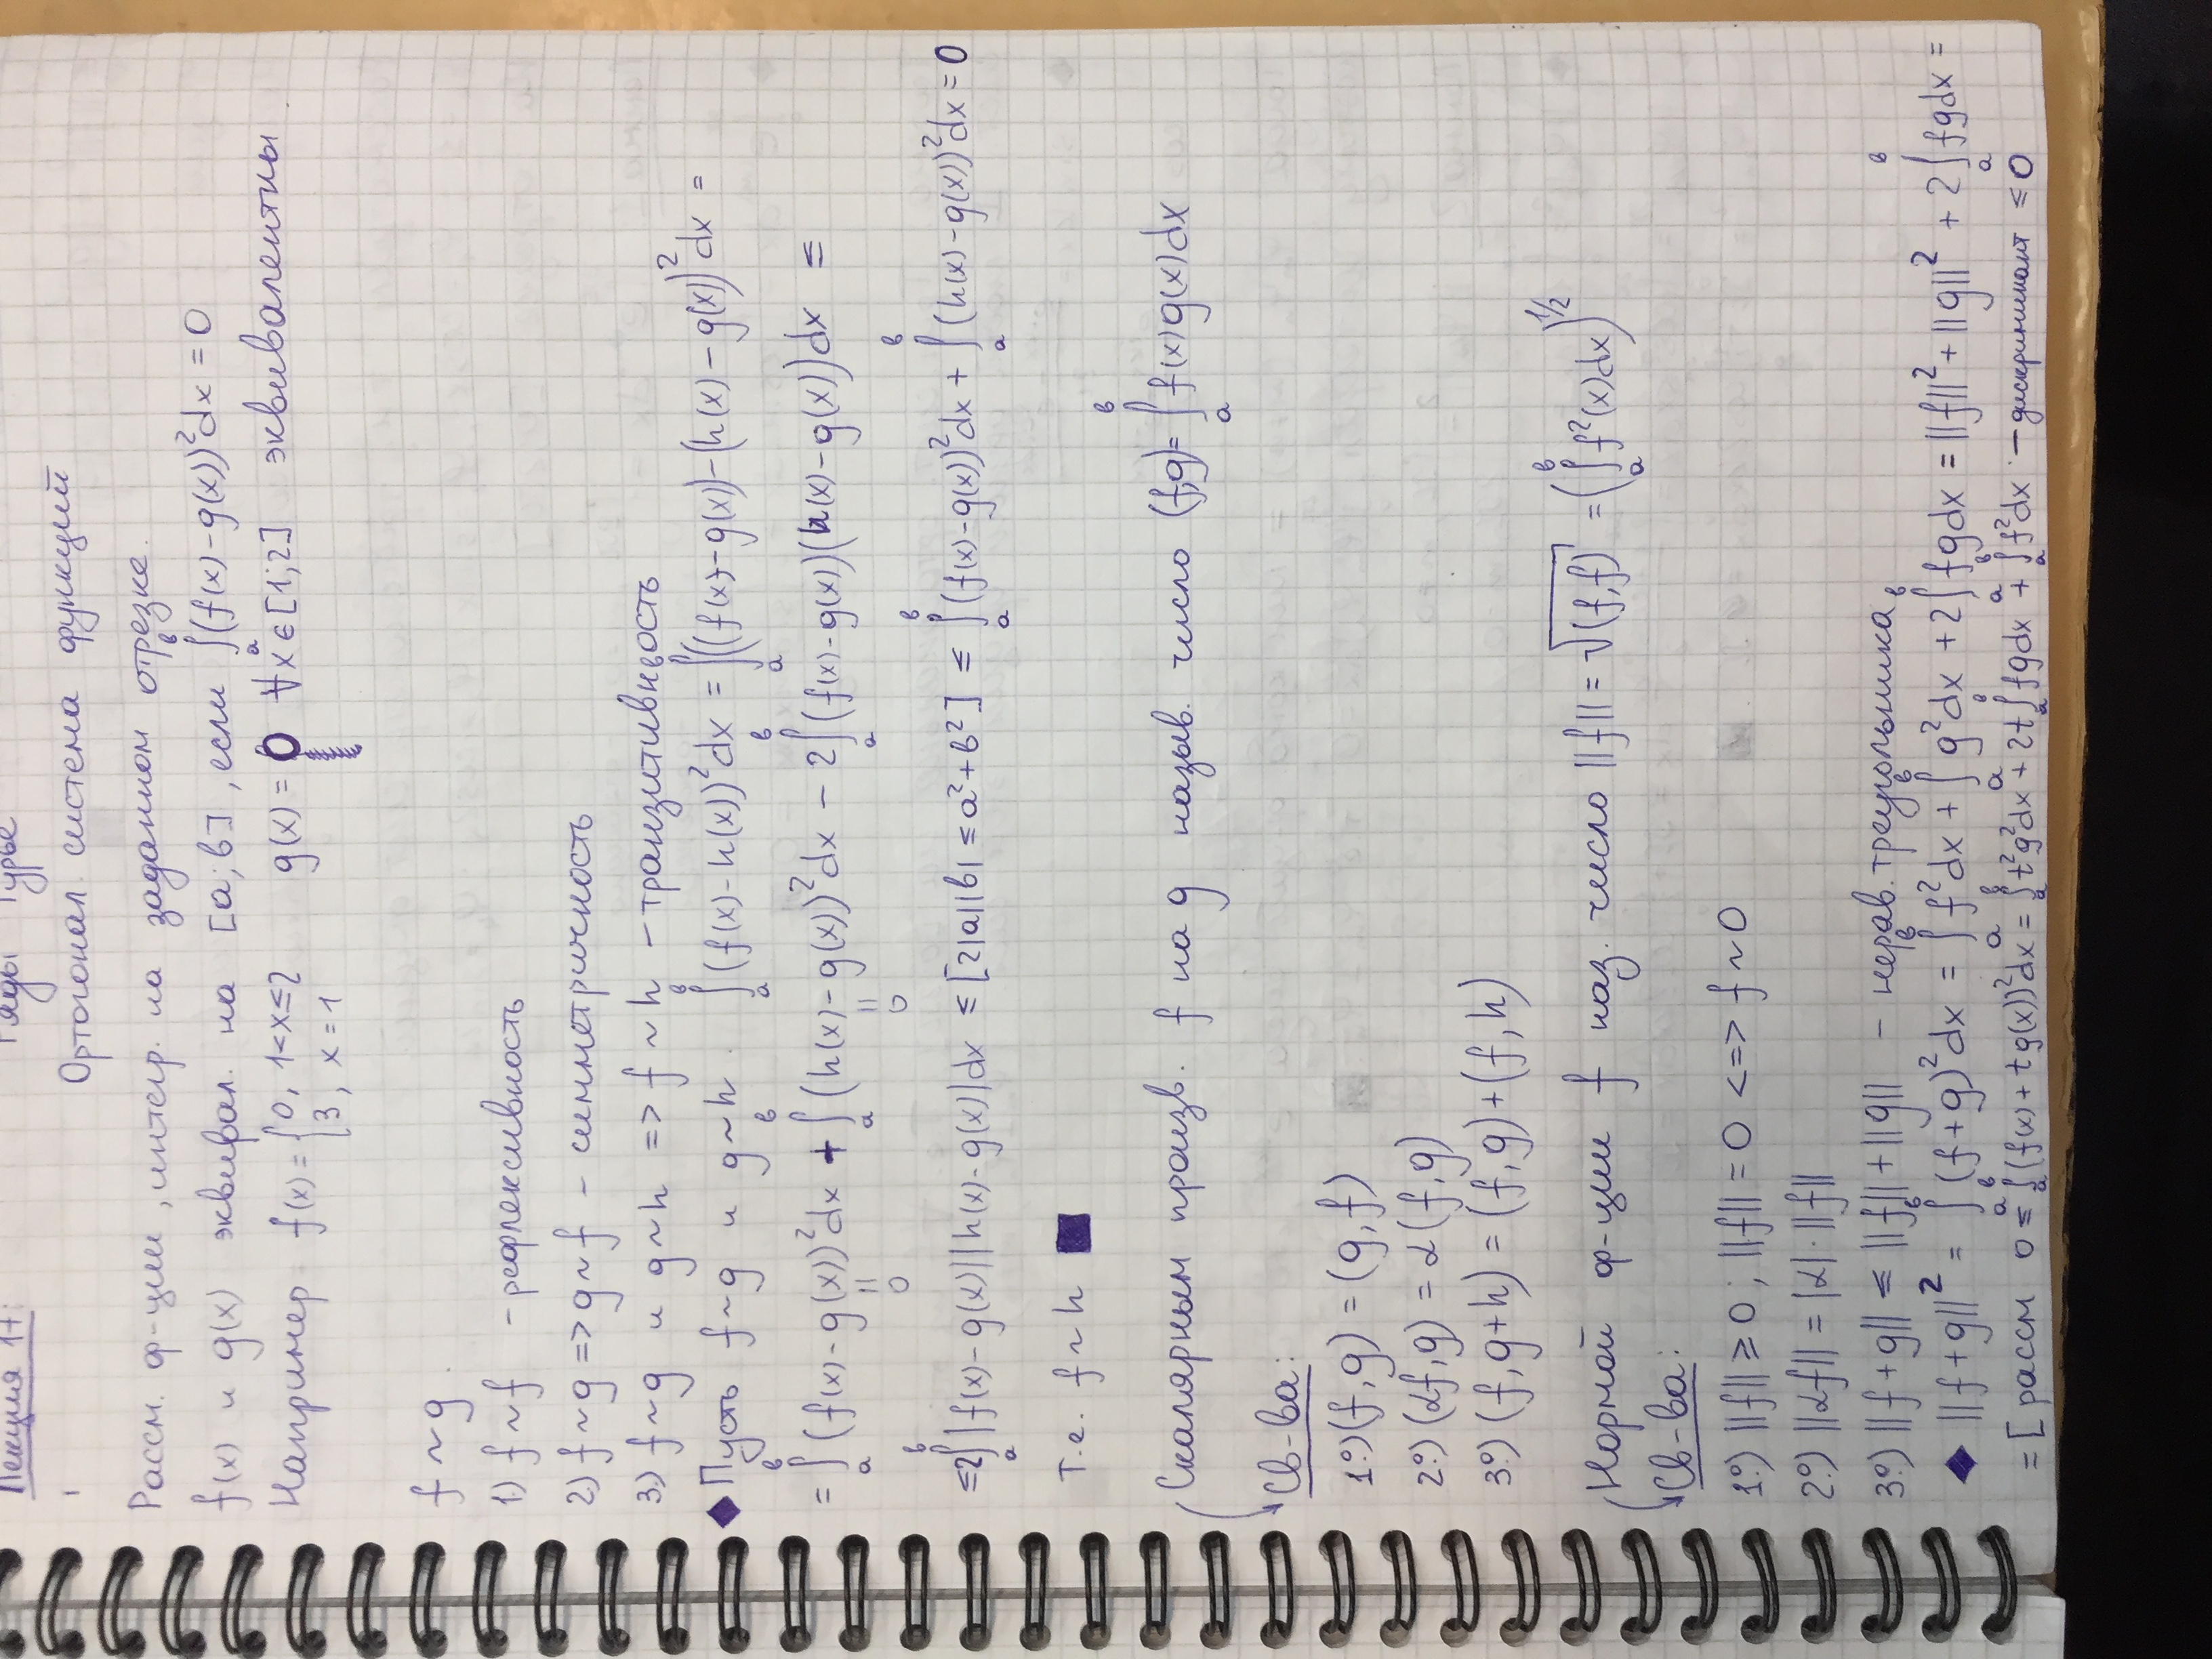 Лекция 17:
Ряды Фурье
Ортогонал. система функций
Рассм. ф-ции, интегр. на заданном отрезке.
f(x) и g(x) эквивал. на [a;b], если ∫ₐᵇ(f(x)-g(x))²dx = 0
Например f(x) = { 0, 1<x≤2 g(x) = 0 ∀x∈[1;2] эквивалентны.
3, x = 1
f ~ g.
1.) f ~ f - рефлексивность
2.) f ~ g => g ~ f - симметричность
3.) f ~ g и g ~ h => f ~ h - транзитивность
◆ Пусть f ~ g и g ~ h. ∫ₐᵇ(f(x)-h(x))²dx = ∫ₐᵇ((f(x)-g(x))-(h(x)-g(x))²dx =
= ∫ₐᵇ(f(x)-g(x))²dx + ∫ₐᵇ(h(x)-g(x))²dx - 2∫ₐᵇ(f(x)-g(x))(h(x)-g(x))dx ≤
|| ||
0 0
≤2∫ₐᵇ|f(x)-g(x)||h(x)-g(x)|dx ≤ [2|a||b| ≤ a²+b²] ≤ ∫ₐᵇ(f(x)-g(x))²dx + ∫ₐᵇ(h(x)-g(x))²dx = 0
Т.е. f ~ h ■
Скалярным произв. f на g назыв. число (f,g) = ∫ₐᵇ f(x)g(x)dx
Св-ва:
1°.) (f,g) = (g,f)
2°.) (αf,g) = α(f,g)
3°.) (f,g+h) = (f,g)+(f,h)
Нормой ф-ции f наз. число ||f|| = √(f,f) = (∫ₐᵇ f²(x)dx)^1/2
Св-ва:
1°.) ||f|| ≥ 0; ||f|| = 0 <=> f ~ 0
2°.) ||αf|| = |α|·||f||
3°.) ||f+g|| ≤ ||f||+||g|| - нерав. треугольника
◆ ||f+g||² = ∫ₐᵇ(f+g)²dx = ∫ₐᵇf²dx + ∫ₐᵇg²dx + 2∫ₐᵇfgdx = ||f||²+||g||² + 2∫ₐᵇfgdx =
= [рассм 0 ≤ ∫ₐᵇ(f(x)+tg(x))²dx = ∫ₐᵇt²g²dx + 2t∫ₐᵇfgdx + ∫ₐᵇf²dx - дискриминант ≤ 0